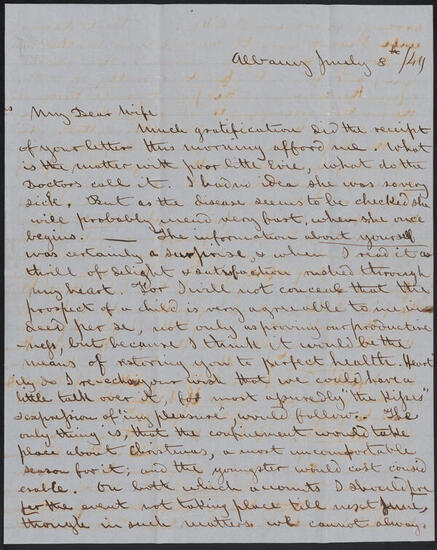 Albany July 8th/49
My Dear Wife
Much gratification did the receipt
of your letter this morning afford me. What
is the matter with poor little Evie, what do the
Doctors call it. I had no idea she was so very
sick. But as the disease seems to be checked she
will probably mend very fast, when she once
begins. — The information about yourself
was certainly a surprise, & when I read it a
thrill of delight & satisfaction rushed through
my heart. For I will not conceal that the
prospect of a child is very agreeable to me in-
deed per se, not only as proving our productive
-ness, but because I think it would be the
means of restoring you to perfect health. Heart
ily do I re-echo your wish that we could have a
little talk over it, & most assuredly "the Kipes"
expression of "my pleasure", would follow. The
only thing is, that the confinement would take
place about Christmas, a most uncomfortable
season for it; and the youngster would cost consid
erable. On both which accounts I should pre
fer the event not taking place till next June,
though in such matters we cannot always